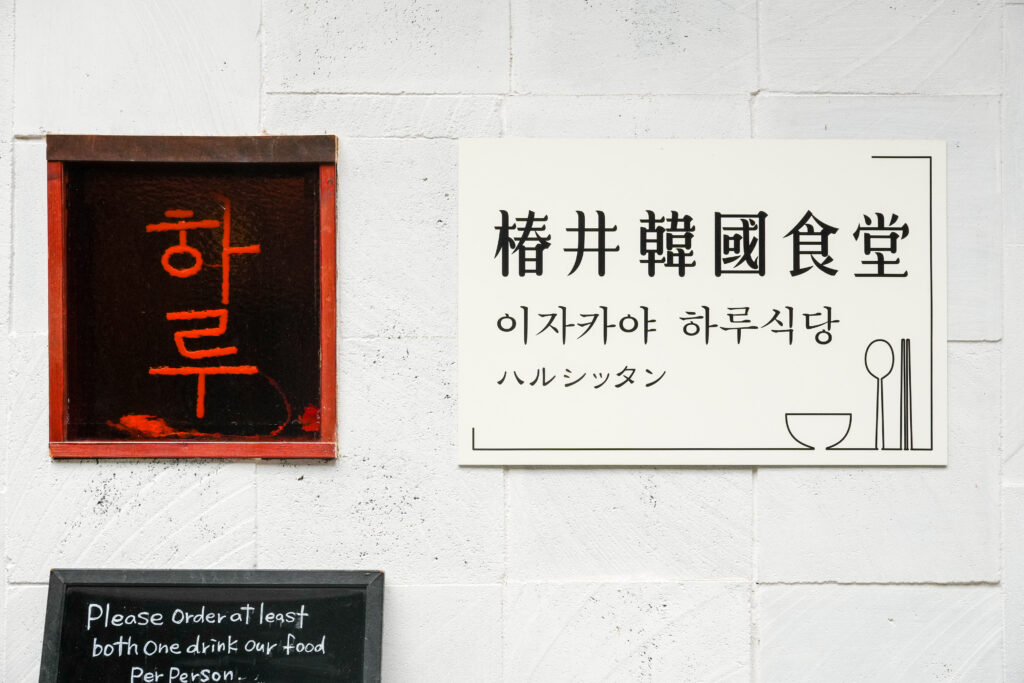 하
루
椿井韓國食堂
이자카야 하루식당
ハルシッタン
Please order at least
both one drink our food
Per Person..